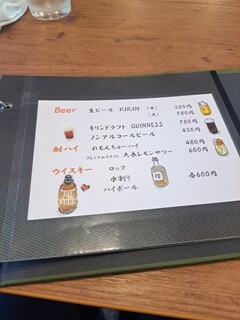 Beer 生ビール KIRIN (中) 580円
(大) 780円
キリンドラフト GUINNESS 780円
ノンアルコールビール 450円
酎ハイ れもんチューハイ 480円
プレミアムクラフト 大長レモンサワー 600円
ウイスキー ロック
水割り 各600円
ハイボール
陸